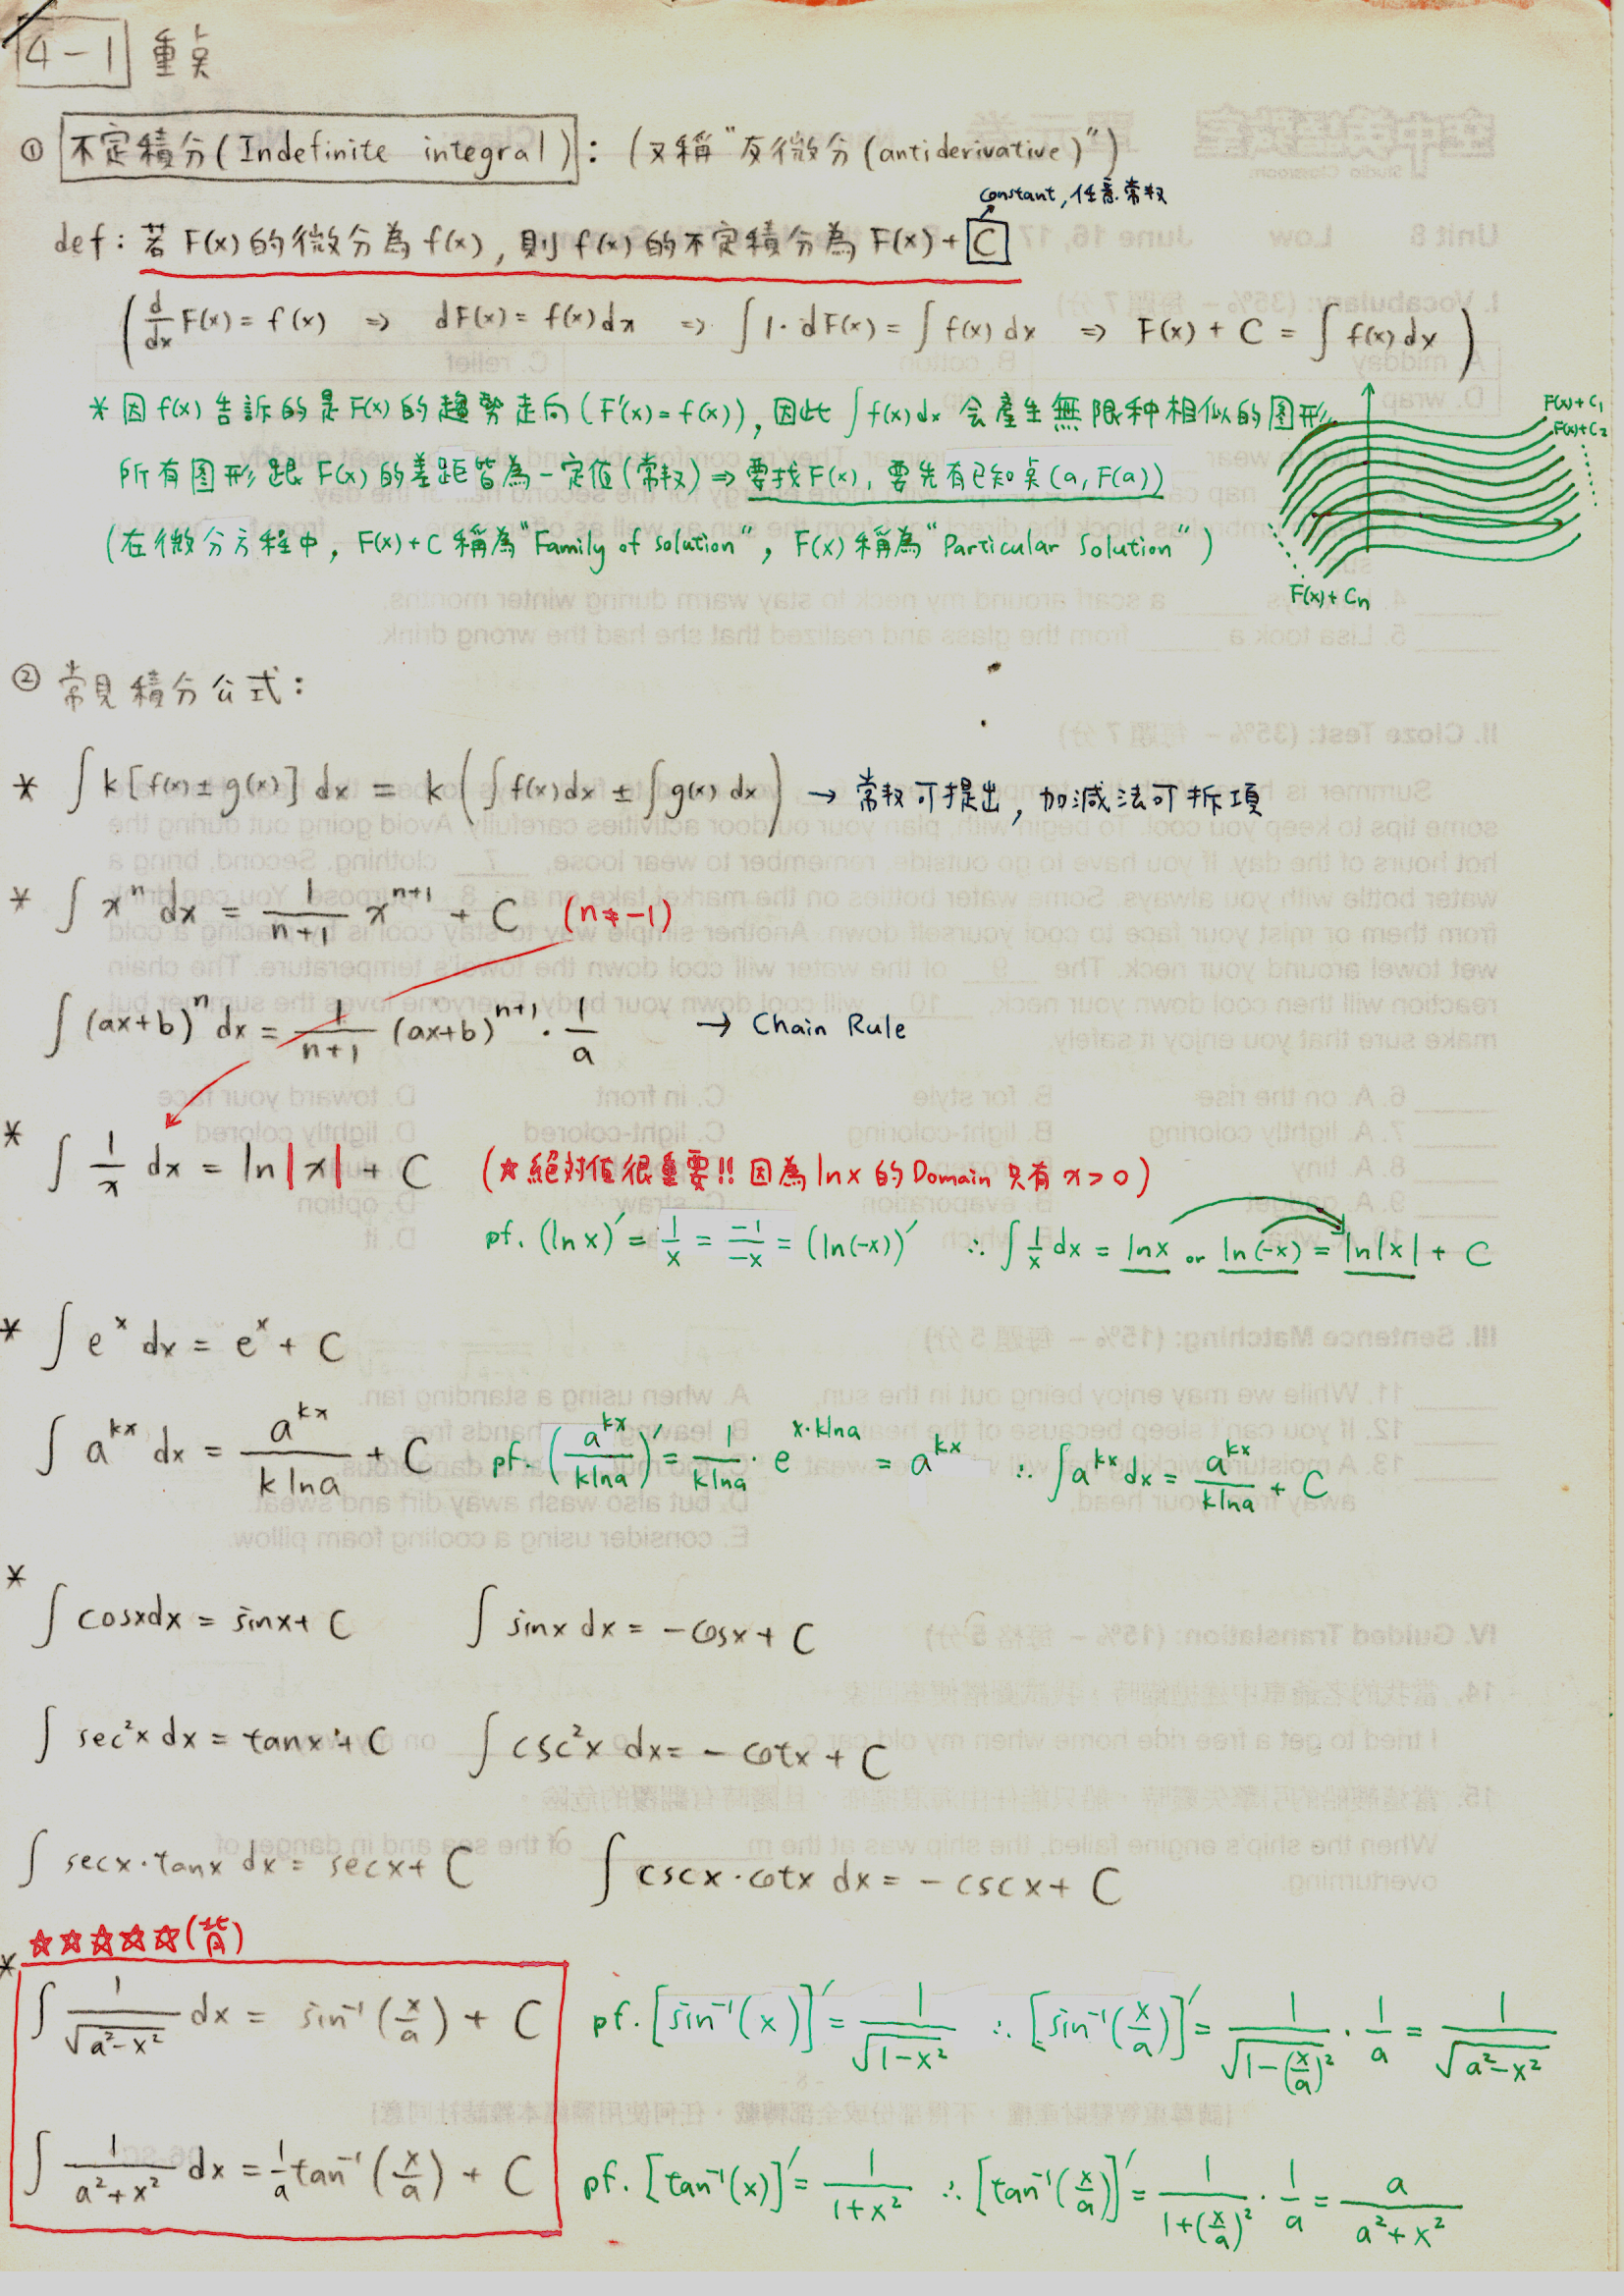 4-1 重点
① 不定積分(Indefinite integral): (又稱"反微分(antiderivative)")
constant, 任意常数
def: 若 F(x) 的微分為 f(x), 則 f(x) 的不定積分為 F(x)+C
(d/dx F(x) = f(x) ⇒ dF(x) = f(x)dx ⇒ ∫1·dF(x) = ∫f(x)dx ⇒ F(x)+C = ∫f(x)dx)
* 因 f(x) 告訴的是 F(x) 的趨勢走向 (F'(x)=f(x)), 因此 ∫f(x)dx 会產生無限种相似的图形
所有图形跟 F(x) 的差距皆為一定值(常数) ⇒ 要找F(x), 要先有已知点 (a, F(a))
(在微分方程中, F(x)+C 稱為 "Family of solution", F(x) 稱為 "Particular Solution")
F(x)+C₁
F(x)+C₂
F(x)+Cn
② 常見積分公式:
* ∫k[f(x)±g(x)]dx = k(∫f(x)dx ± ∫g(x)dx) → 常数可提出, 加減法可拆項
* ∫xⁿ dx = 1/(n+1) xⁿ⁺¹ + C (n≠-1)
∫(ax+b)ⁿ dx = 1/(n+1) (ax+b)ⁿ⁺¹ · 1/a → Chain Rule
* ∫ 1/x dx = ln|x| + C (☆絕対值很重要!! 因為 lnx 的 Domain 只有 x>0)
pf. (lnx)' = 1/x = -1/-x = (ln(-x))' ∴ ∫ 1/x dx = lnx or ln(-x) = ln|x| + C
* ∫eˣ dx = eˣ + C
∫a^(kx) dx = a^(kx)/(k lna) + C pf. (a^(kx)/(klna))' = 1/(klna) · e^(x·klna) = a^(kx) ∴ ∫a^(kx) dx = a^(kx)/(klna) + C
* ∫cosxdx = sinx + C ∫sinx dx = -cosx + C
∫sec²x dx = tanx + C ∫csc²x dx = -cotx + C
∫secx·tanx dx = secx + C ∫cscx·cotx dx = -cscx + C
☆☆☆☆☆(背)
* ∫ 1/√(a²-x²) dx = sin⁻¹(x/a) + C pf. [sin⁻¹(x)]' = 1/√(1-x²) ∴ [sin⁻¹(x/a)]' = 1/√(1-(x/a)²) · 1/a = 1/√(a²-x²)
∫ 1/(a²+x²) dx = 1/a tan⁻¹(x/a) + C pf. [tan⁻¹(x)]' = 1/(1+x²) ∴ [tan⁻¹(x/a)]' = 1/(1+(x/a)²) · 1/a = a/(a²+x²)